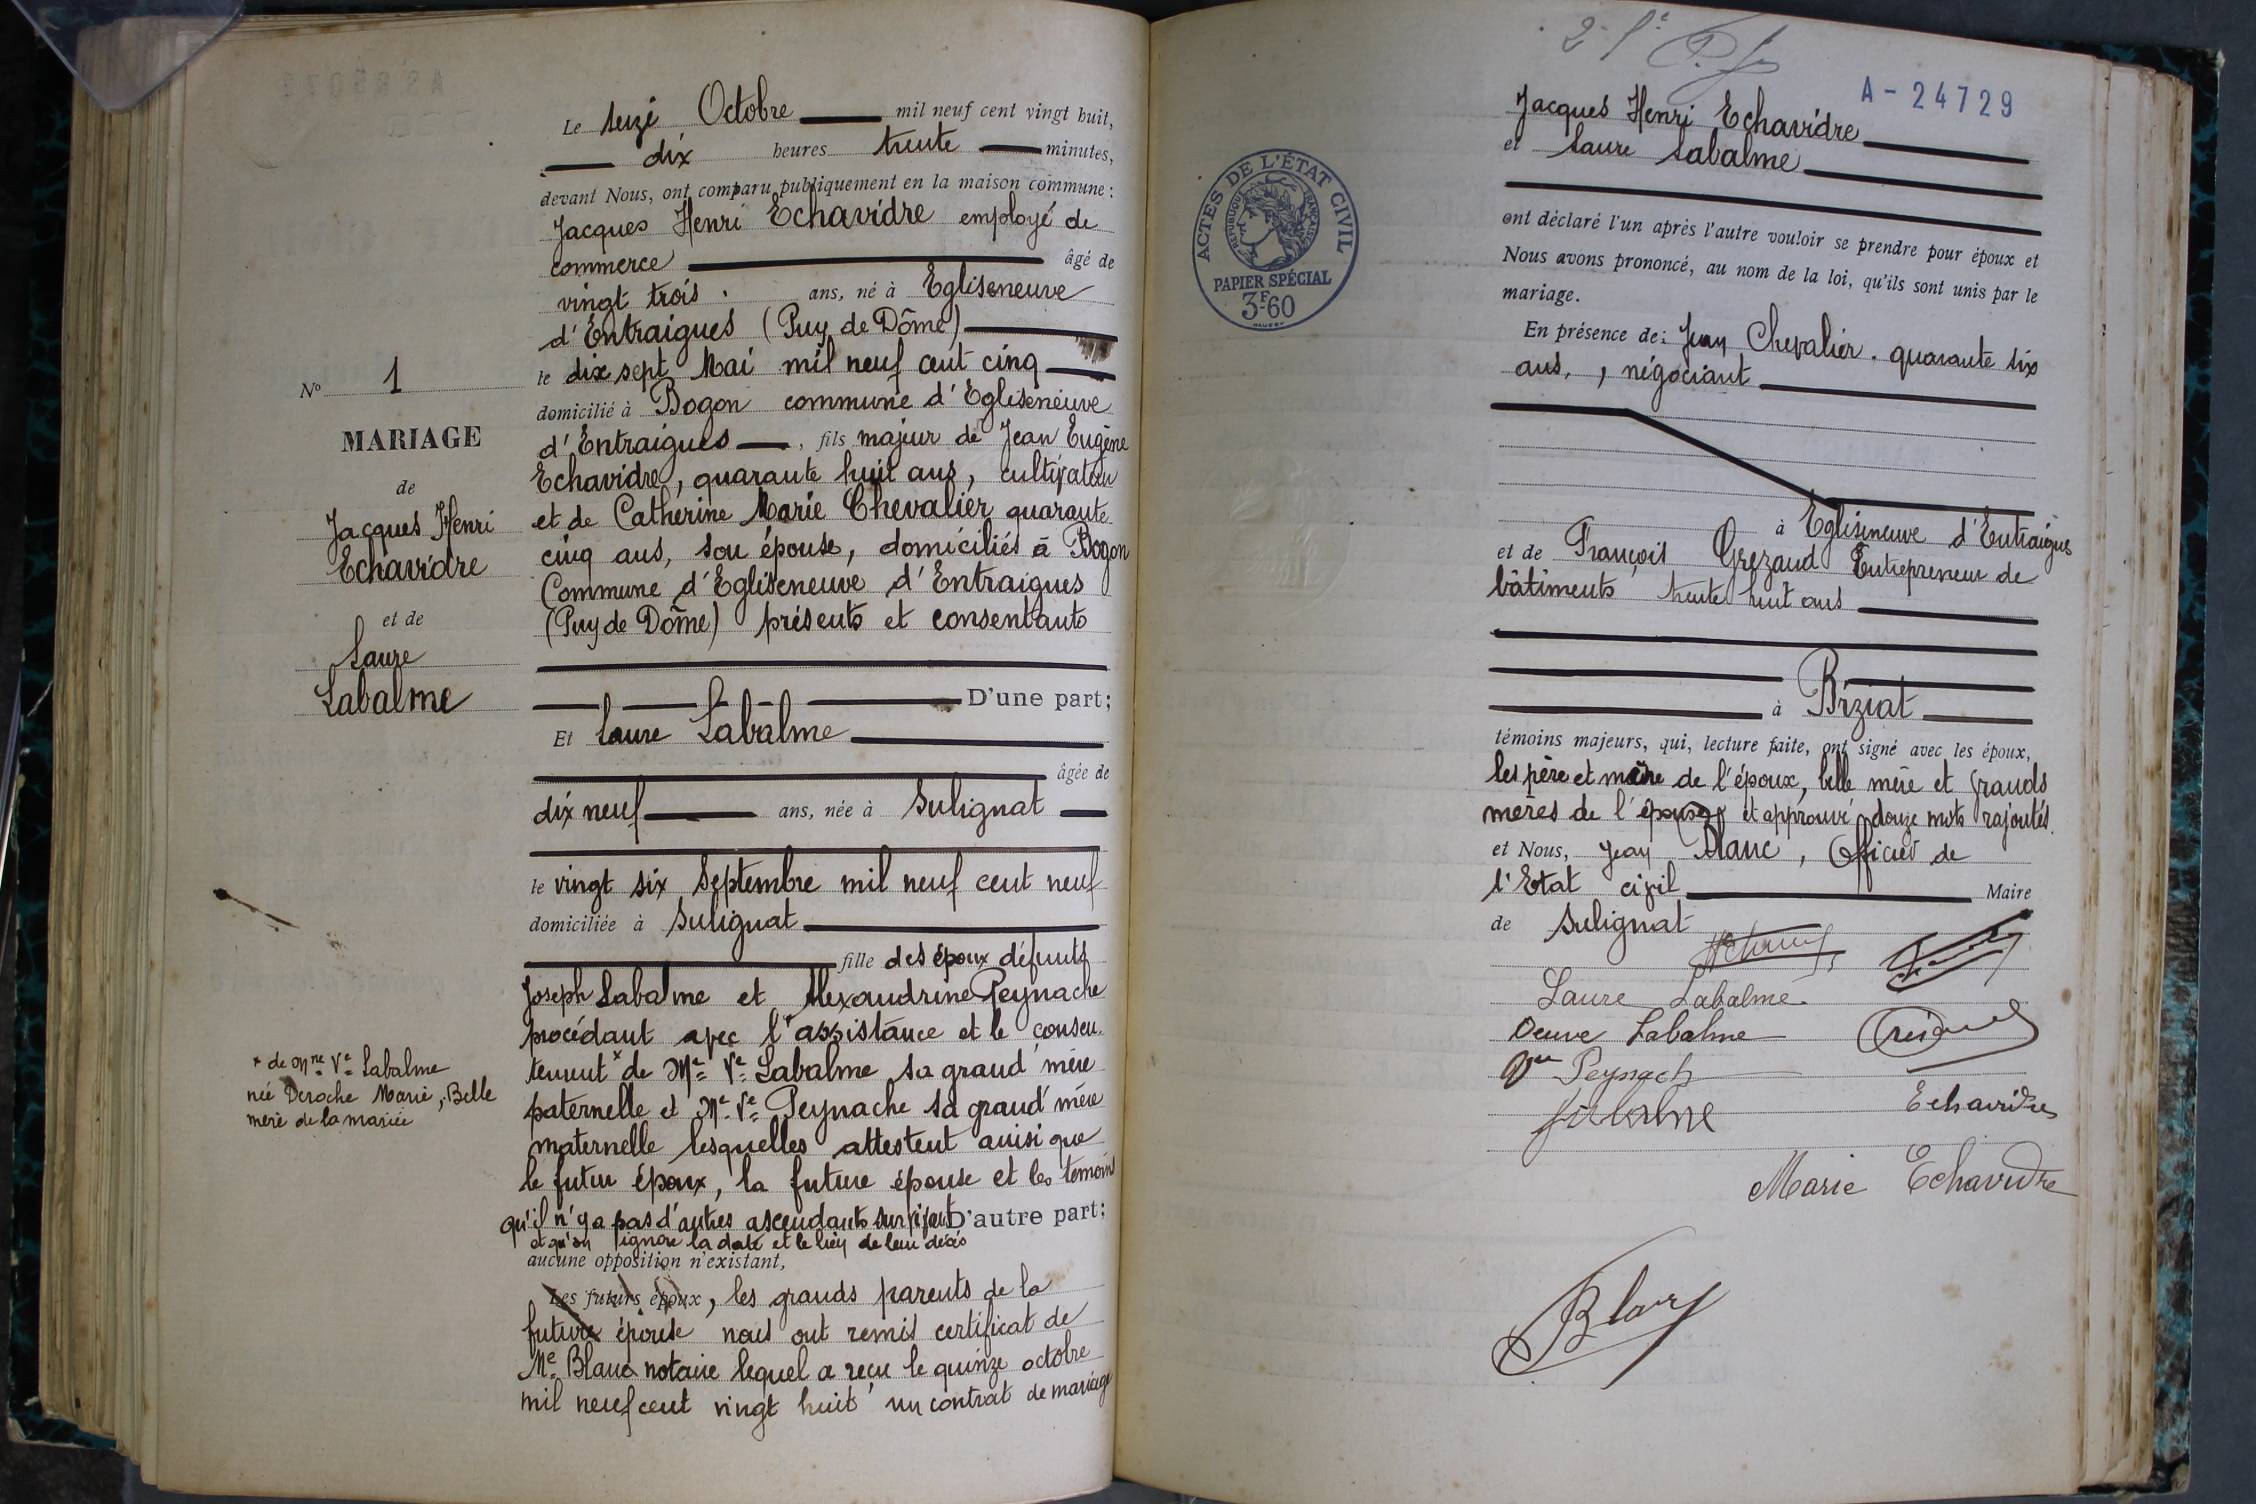 Le seize Octobre mil neuf cent vingt huit,
dix heures trente minutes,
devant Nous, ont comparu publiquement en la maison commune :
Jacques Henri Echavidre employé de
commerce âgé de
vingt trois . ans, né à Egliseneuve
d'Entraigues (Puy de Dôme)
le dix sept Mai mil neuf cent cinq
domicilié à Bogon commune d'Egliseneuve
d'Entraigues , fils majeur de Jean Eugène
Echavidre, quarante huit ans, cultivateur
et de Catherine Marie Chevalier quarante
cinq ans, son épouse, domiciliés à Bogon
Commune d'Egliseneuve d'Entraigues
(Puy de Dôme) présents et consentants
D'une part;
Et Laure Labalme
âgée de
dix neuf ans, née à Sulignat
le vingt six Septembre mil neuf cent neuf
domiciliée à Sulignat
fille des époux défunts
Joseph Labalme et Alexandrine Peynache
procédant avec l'assistance et le consen-
tement * de Me Ve Labalme sa grand'mère
paternelle et Me Ve Peynache sa grand'mère
maternelle lesquelles attestent ainsi que
le futur époux, la future épouse et les témoins
qu'il n'y a pas d'autres ascendants survivant D'autre part;
et qu'on ignore la date et le lieu de leur décès
aucune opposition n'existant,
Les futurs époux, les grands parents de la
future épouse nous ont remis certificat de
Me Blanc notaire lequel a reçu le quinze octobre
mil neuf cent vingt huit un contrat de mariage
No 1
MARIAGE
de
Jacques Henri
Echavidre
et de
Laure
Labalme
* de Mme Ve Labalme
née Deroche Marie, Belle
mère de la mariée
A - 24729
ACTES DE L'ÉTAT CIVIL
RÉPUBLIQUE FRANÇAISE
PAPIER SPÉCIAL
3F-60
Jacques Henri Echavidre
et Laure Labalme
ont déclaré l'un après l'autre vouloir se prendre pour époux et
Nous avons prononcé, au nom de la loi, qu'ils sont unis par le
mariage.
En présence de : Jean Chevalier . quarante six
ans, , négociant
à Egliseneuve d'Entraigues
et de François Grezaud Entrepreneur de
bâtiments trente huit ans
à Biziat
témoins majeurs, qui, lecture faite, ont signé avec les époux,
les père et mère de l'époux, belle mère et grands
mères de l'épouse et approuvé douze mots rajoutés.
et Nous, Jean Blanc, Officier de
l'Etat civil Maire
de Sulignat
Laure Labalme
Veuve Labalme
Vve Peynach
Labalme
Echavidre
Marie Echavidre
Blanc